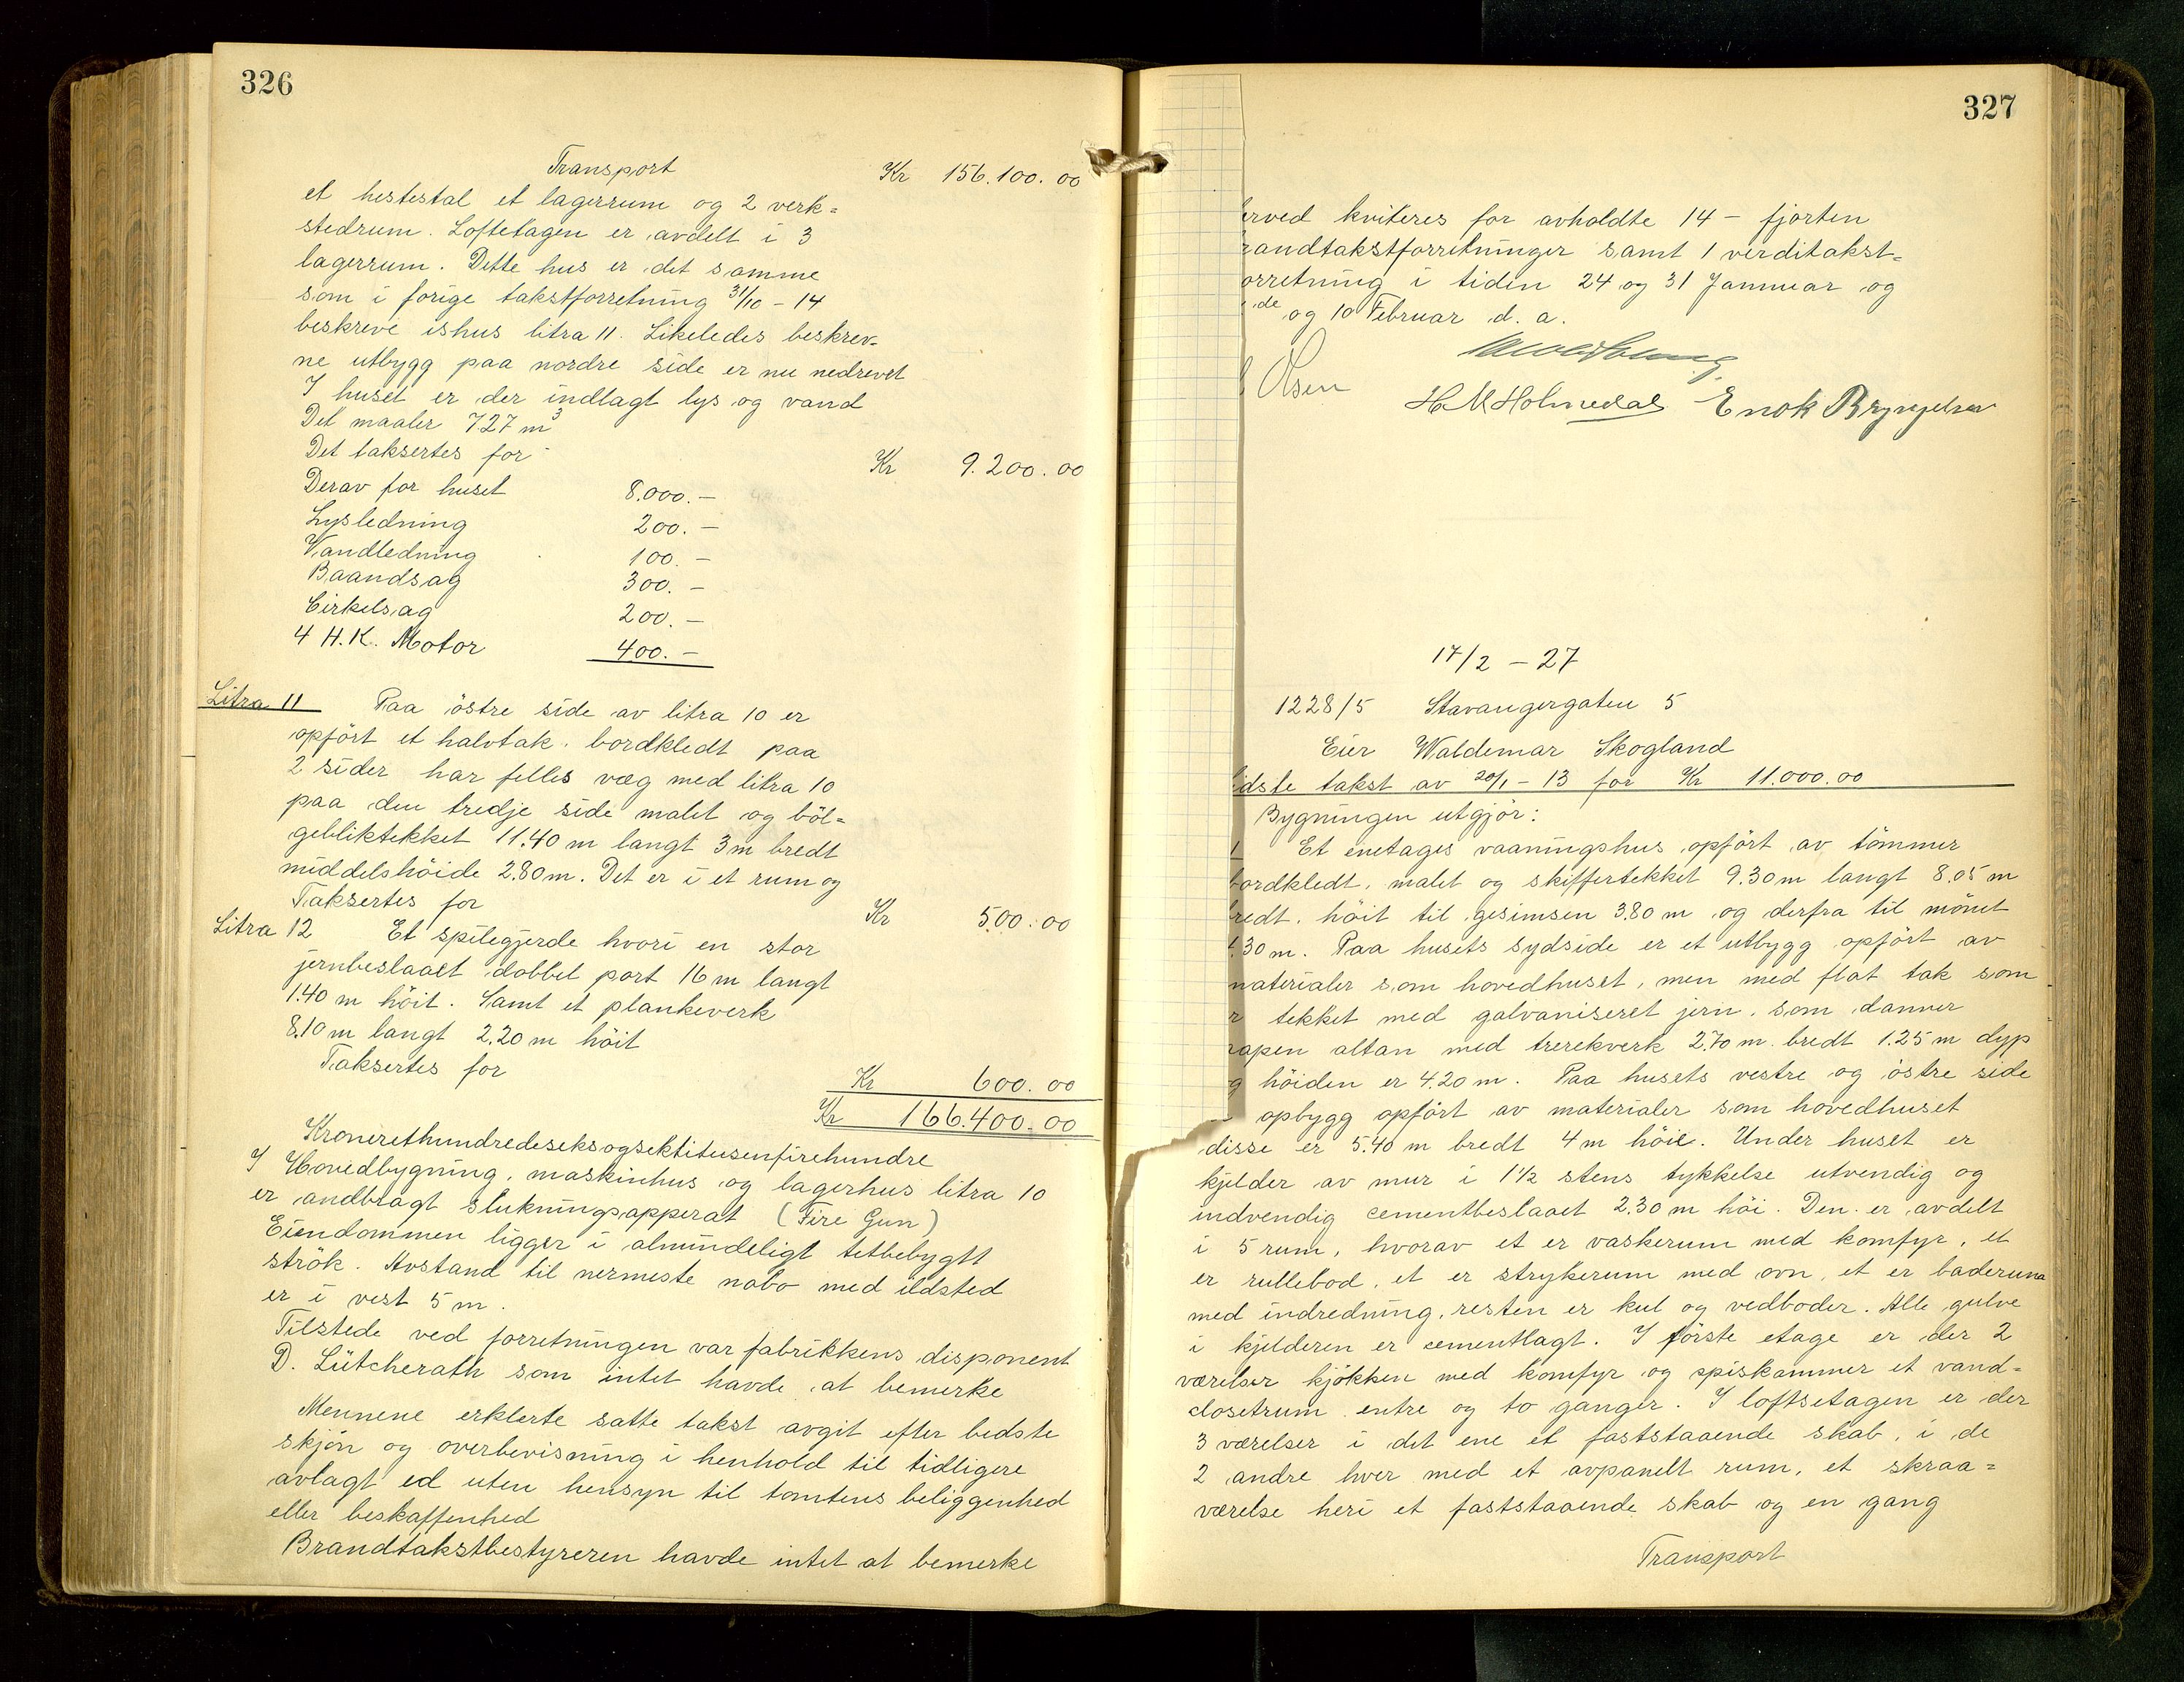 326
Transport Kr 156.100.00
et hestestal et lagerrum og 2 verk=
stedrum. Loftetagen er avdelt i 3
lagerrum. Dette hus er det samme
som i forige takstforretning 31/10 - 14
beskreve ishus litra 11. Likeledes beskrev-
ne utbygg paa nordre side er nu nedrevet
I huset er der indlagt lys og vand
Det maaler 727 m3
Det taksertes for Kr 9.200.00
Derav for huset 8.000.-
Lysledning 200.-
Vandledning 100.-
Baandsag 300.-
Cirkelsag 200.-
4 H.K. Motor 400.-
Litra 11 Paa östre side av litra 10 er
opfört et halvtak. bordkledt paa
2 sider har felles væg med litra 10
paa den tredje side malet og böl=
gebliktekket 11.40 m langt 3m bredt
middelshöide 2.80m. Det er i et rum og
Taksertes for Kr 500.00
Litra 12 Et spilegjerde hvori en stor
jernbeslaaet dobbel port 16 m langt
1.40 m höit. Samt et plankeverk
8.10 m langt 2.20 m höit
Taksertes for Kr 600.00
Kr 166.400.00
Kroneretthundredeseksogsektitusenfirehundre
I Hovedbygning, maskinhus og lagerhus litra 10
er andbragt slukningsapperat (Fire Gun)
Eiendommen ligger i almindeligt tetbebygtt
strök. Avstand til nermeste nabo med ildsted
er i vest 5 m.
Tilstede ved forretningen var fabrikkens disponent
D. Lütcherath som intet havde at bemerke
Mennene erklerte satte takst avgit efter bedste
skjön og overbevisning i henhold til tidligere
avlagt ed uten hensyn til tomtens beliggenhed
eller beskaffenhed
Brandtakstbestyreren havde intet at bemerke
327
erved kviteres for avholdte 14 - fjorten
randtakstforretninger samt 1 verditakst=
orretning i tiden 24 og 31 Januar og
de og 10 Februar d. a.
Olsen H. M Holmedal Enok Bryngelsen
17/2 - 27
1228/5 Stavangergaten 5
Eier Waldemar Skogland
idste takst av 20/1 - 13 for Kr 11.000.00
Bygningen utgjör:
1 Et enetages vaaningshus opfört av tömmer
bordkledt, malet og skiffertekket 9.30 m langt 8.05 m
redt. höit til gesimsen 3.80 m og derfra til mönet
.30 m. Paa husets sydside er et utbygg opfört av
materialer som hovedhuset, men med flat tak som
r tekket med galvaniseret jern, som danner
apen altan med trerekverk 2.70 m bredt 1.25 m dyp
g höiden er 4.20 m. Paa husets vestre og östre side
opbygg opfört av materialer som hovedhuset
disse er 5.40 m bredt 4 m höie. Under huset er
kjelder av mur i 1 1/2 stens tykkelse utvendig og
indvendig cementbeslaaet 2.30 m höi. Den er avdelt
i 5 rum, hvorav et er vaskerum med komfyr, et
er rullebod, et er strykerum med ovn, et er baderum
med indredning, resten er kul og vedboder. Alle gulve
i kjelderen er cementlagt. I förste etage er der 2
værelser kjökken med komfyr og spiskammer et vand=
closetrum entre og to ganger. I loftsetagen er der
3 værelser i det ene et faststaaende skab, i de
2 andre hver med et avpanelt rum, et skraa=
værelse heri et faststaaende skab og en gang
Transport